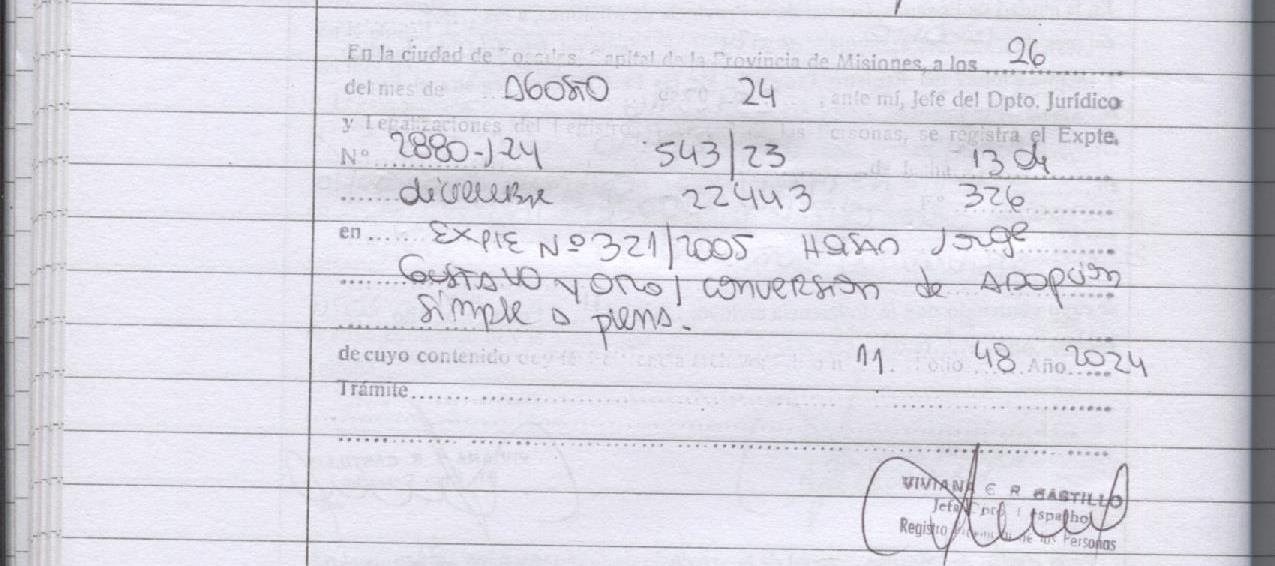 En la ciudad de Posadas, Capital de la Provincia de Misiones, a los 26
del mes de AGOSTO 24, ante mí, Jefe del Dpto. Jurídico
y Legalizaciones del Registro las Personas, se registra el Expte.
Nº 2880-/24 543/23 de fecha 13 de
diciembre 22443 Fº 326
en EXPTE Nº 321/2005 Jorge
GUSTAVO y OTRO/ CONVERSIÓN de ADOPCIÓN
simple a plena.
de cuyo contenido doy fé 11. Folio 48. Año 2024
Trámite
VIVIANA E R CASTILLO
Jefa Dpto Despacho
Registro Provincial de las Personas